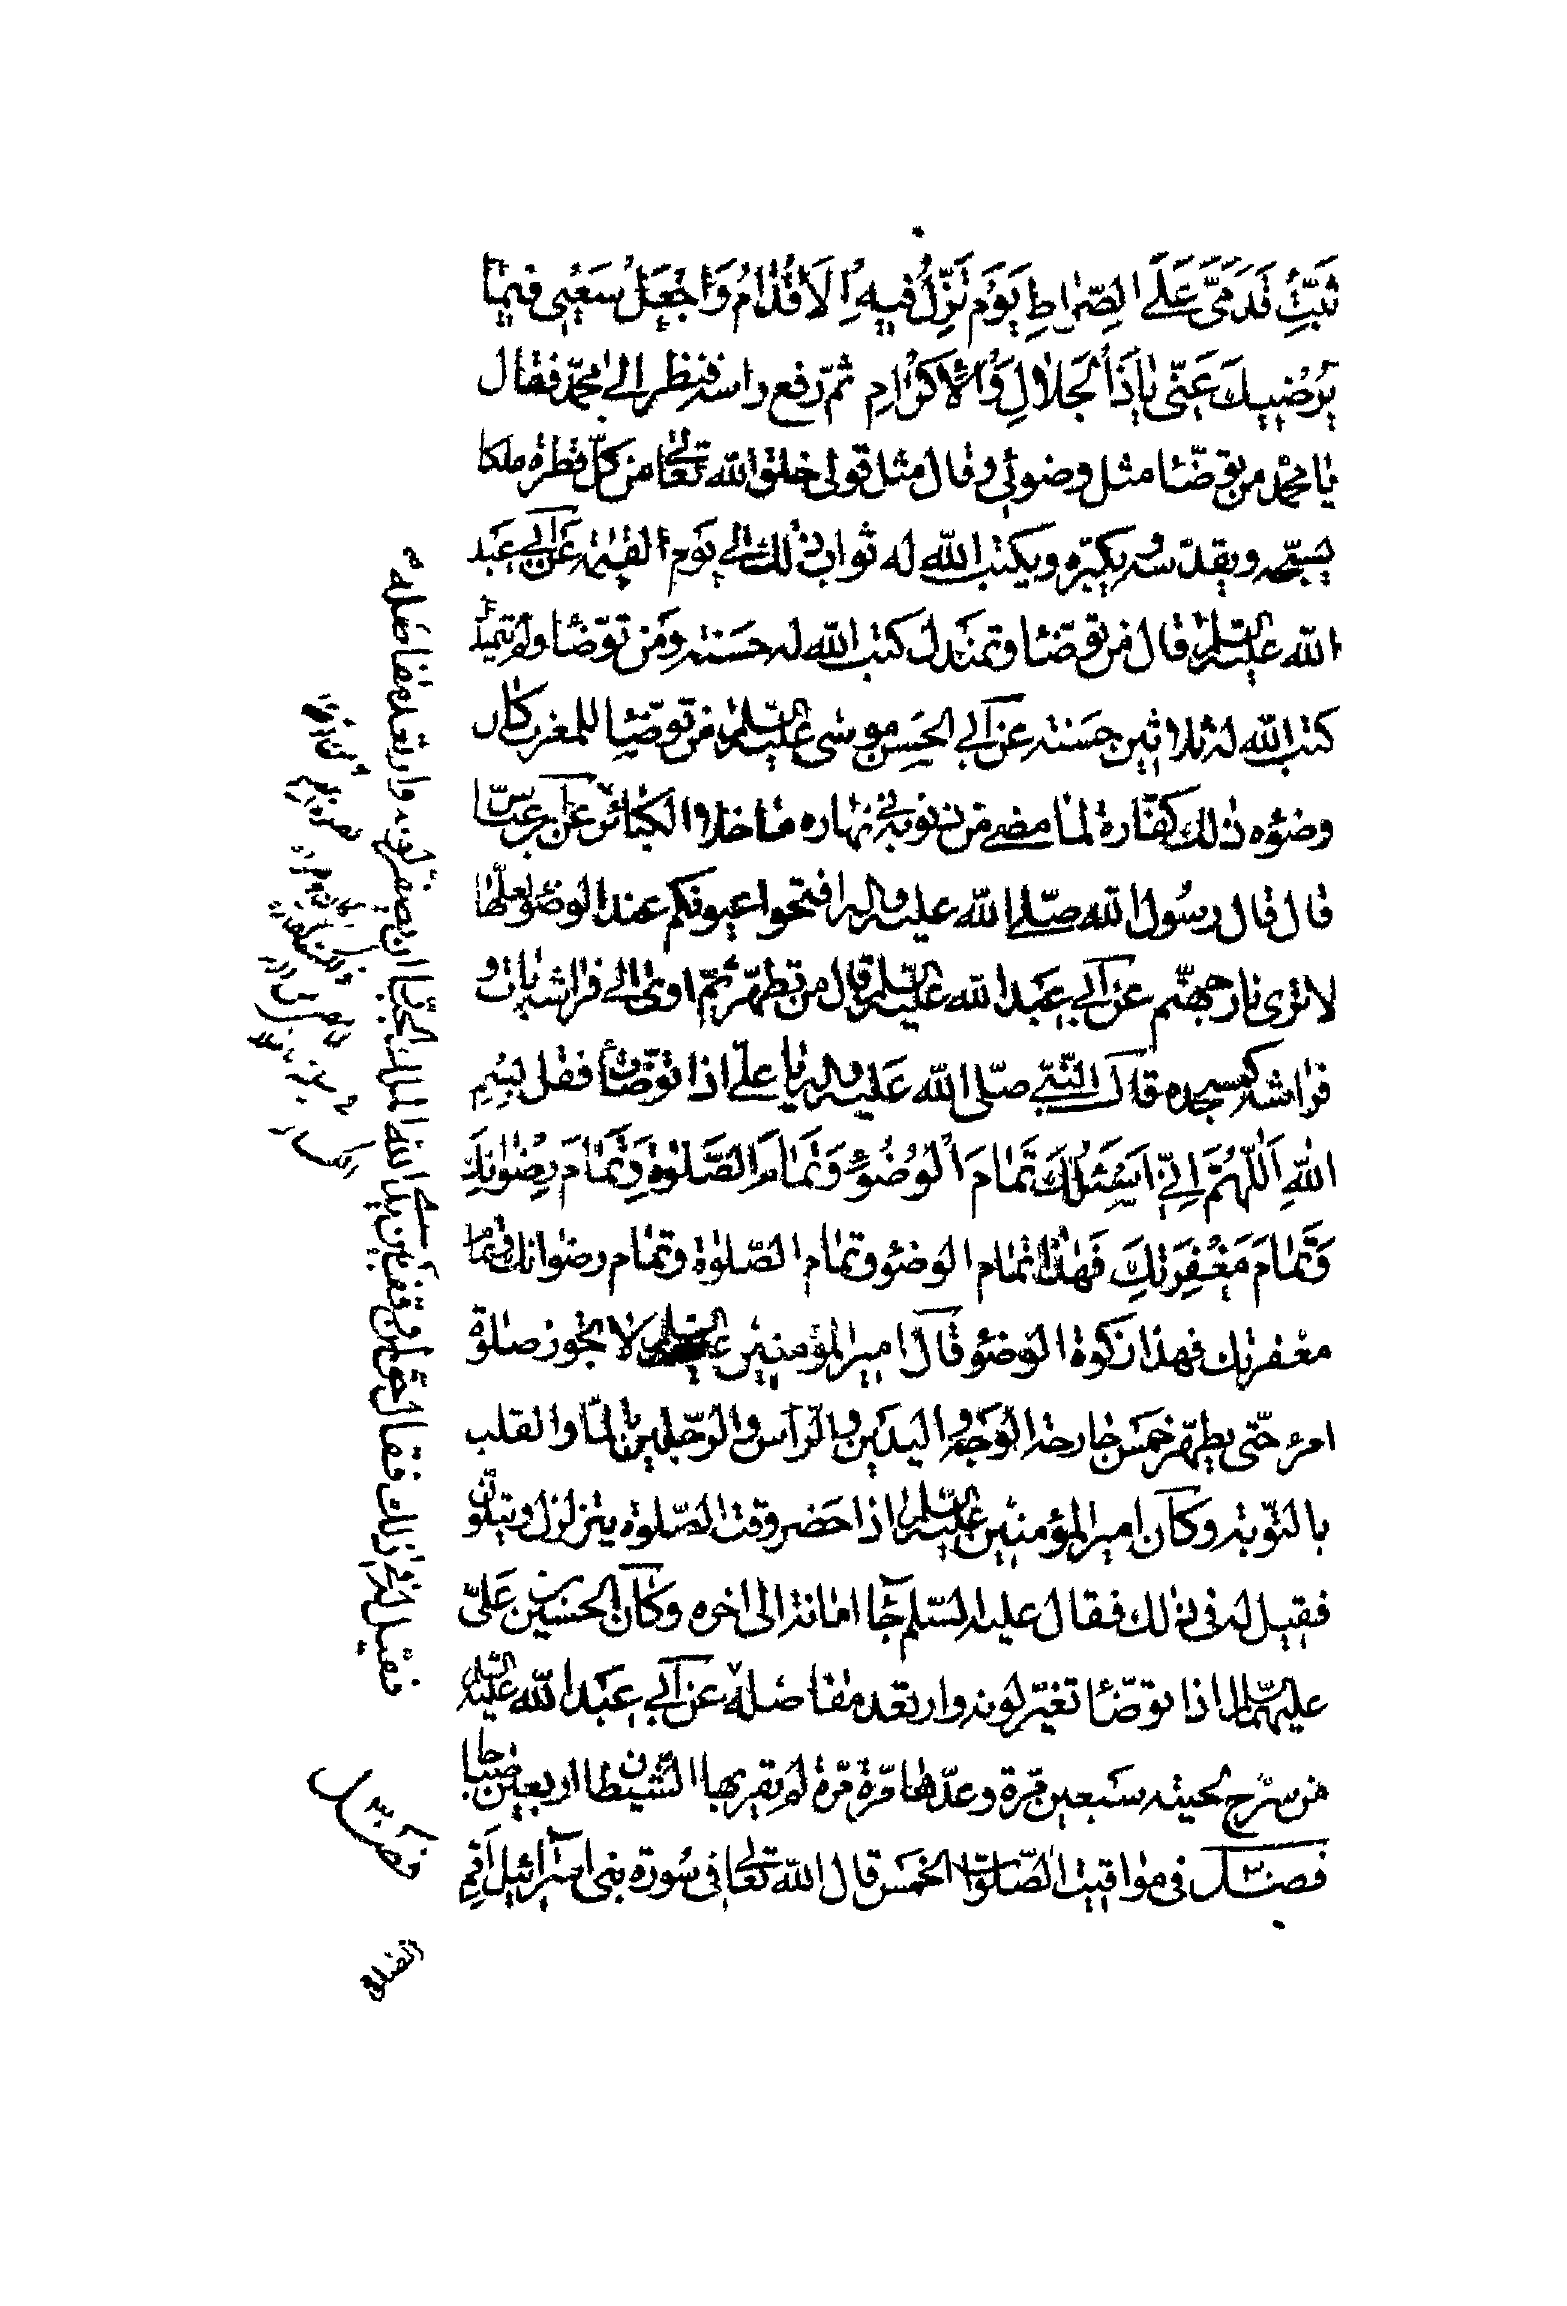 ثَبِّتْ قَدَمَيَّ عَلَى الصِّرَاطِ يَوْمَ تَزِلُّ فِيهِ الْأَقْدَامُ وَاجْعَلْ سَعْيِي فِيمَا
يُرْضِيكَ عَنِّي يَا ذَا الْجَلَالِ وَالْإِكْرَامِ ثمّ رفع راسه فنظر الى محمّد فقال
يا محمّد من توضّئا مثل وضوئي وقال مثل قولي خلق الله تعالى من كلّ قطرة ملكا
يسبّحه ويقدّسه ويكبّره ويكتب الله له ثواب ذلك الى يوم القيمة عن ابي عبد
الله عليه السلم قال من توضّئا وتمندل كتب الله له حسنة ومن توضّا ولم يتمندل
كتب الله له ثلاثين حسنة عن ابي الحسن موسى عليه السلم من توضّئا للمغرب كان
وضوءه ذلك كفّارة لما مضى من ذنوبه في نهاره ما خلا الكبائر عن ابن عبّاس
قال قال رسول الله صلى الله عليه واله افتحوا عيونكم عند الوضوء لعلّها
لا ترى نار جهنّم عن ابي عبد الله عليه السلم قال من تطهّر ثمّ اوى الى فراشه بات و
فراشه كمسجده قال النّبيّ صلّى الله عليه واله يا عليّ اذا توضّأت فقل بسم
اللهِ اَللّهُمَّ اِنّي اَسْئَلُكَ تَمَامَ الْوُضُوءِ وَتَمَامَ الصَّلوةِ وَتَمَامَ رِضْوَانِكَ
وَتَمَامَ مَغْفِرَتِكَ فَهذا تمام الوضوء وتمام الصّلوة وتمام رضوانك وتمام
مغفرتك فهذا زكوة الوضوء قال امير المؤمنين عليه السلم لا تجوز صلوة
امرء حتّى يطهّر خمس جارحة الوجه واليدين والرّاس والرّجلين بالماء والقلب
بالتّوبة وكان امير المؤمنين عليه السلم اذا حضر وقت الصّلوة يتزلزل ويتلوّن
فقيل له في ذلك فقال عليه السّلم جاء امانة الى اخره وكان الحسين بن عليّ
عليهما السلم اذا توضّئا تغيّر لونه وارتعد مفاصله عن ابي عبد الله عليه السلم
من سرّح لحيته سبعين مرّة وعدّها مرّة مرّة لم يقربها الشّيطان اربعين صباحا
فصل في مواقيت الصّلوات الخمس قال الله تعالى في سورة بني اسرائيل اَقِمِ
الصلوة
فقيل له في ذلك فقال حقّ لمن وقف بين يدي الله الملك الجبّار ان يصفرّ لونه وارتعد مفاصله